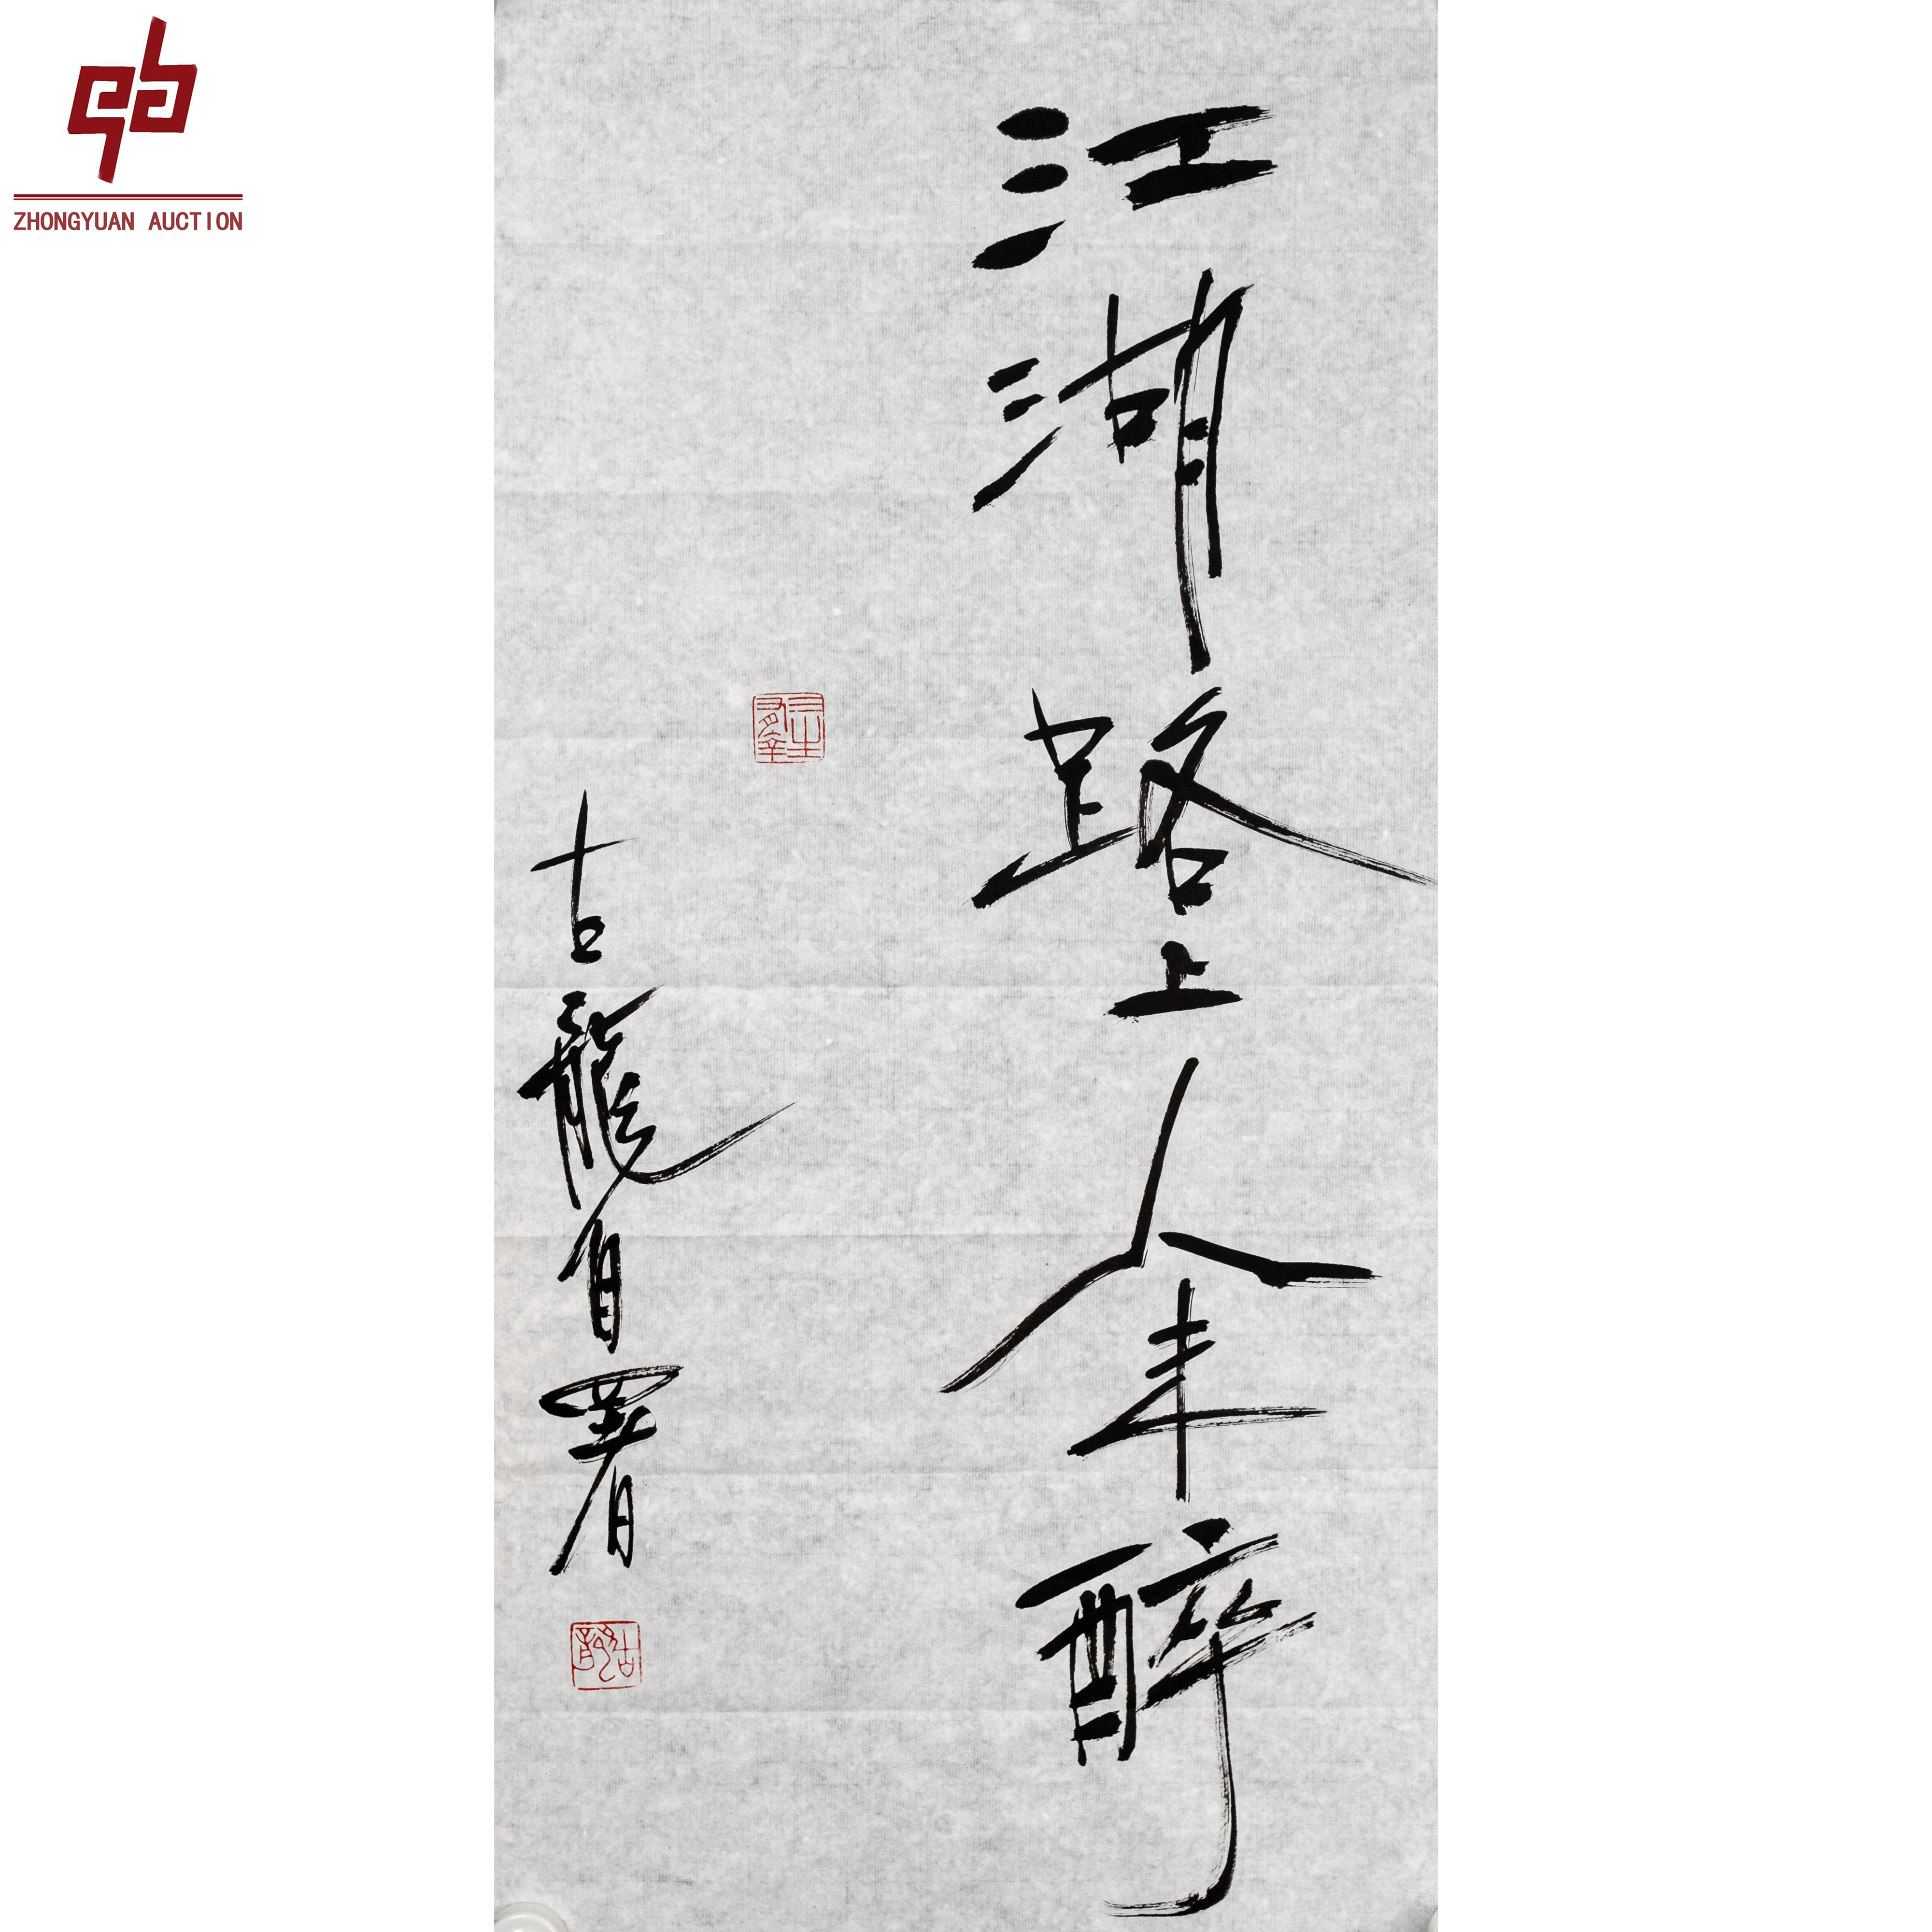 江湖路上人未醉
古龍自署
古龍
ZHONGYUAN AUCTION